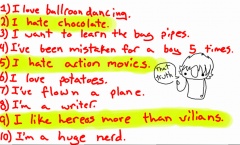 1) I love ballroom dancing.
2) I hate chocolate.
3) I want to learn the bag pipes.
4) I've been mistaken for a boy 5 times.
5) I hate action movies.
6) I love potatoes.
7) I've flown a plane.
8) I'm a writer.
9) I like heroes more than vilians.
10) I'm a huge nerd.
that truth